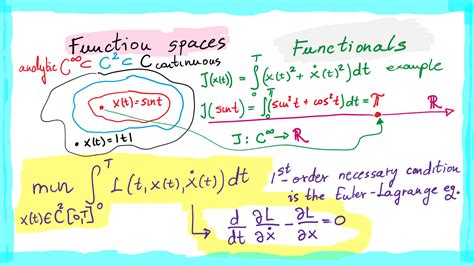 Function spaces
analytic C^∞ ⊂ C² ⊂ C continuous
x(t) = sint
x(t) = |t|
Functionals
J(x(t)) = ∫₀ᵀ (x(t)² + ẋ(t)²) dt example
J(sint) = ∫₀ᵀ (sin²t + cos²t) dt = T ℝ
J : C^∞ → ℝ
min ∫₀ᵀ L(t, x(t), ẋ(t)) dt
x(t) ∈ C²[0,T]
1st-order necessary condition
is the Euler-Lagrange eq.
d/dt ∂L/∂ẋ − ∂L/∂x = 0